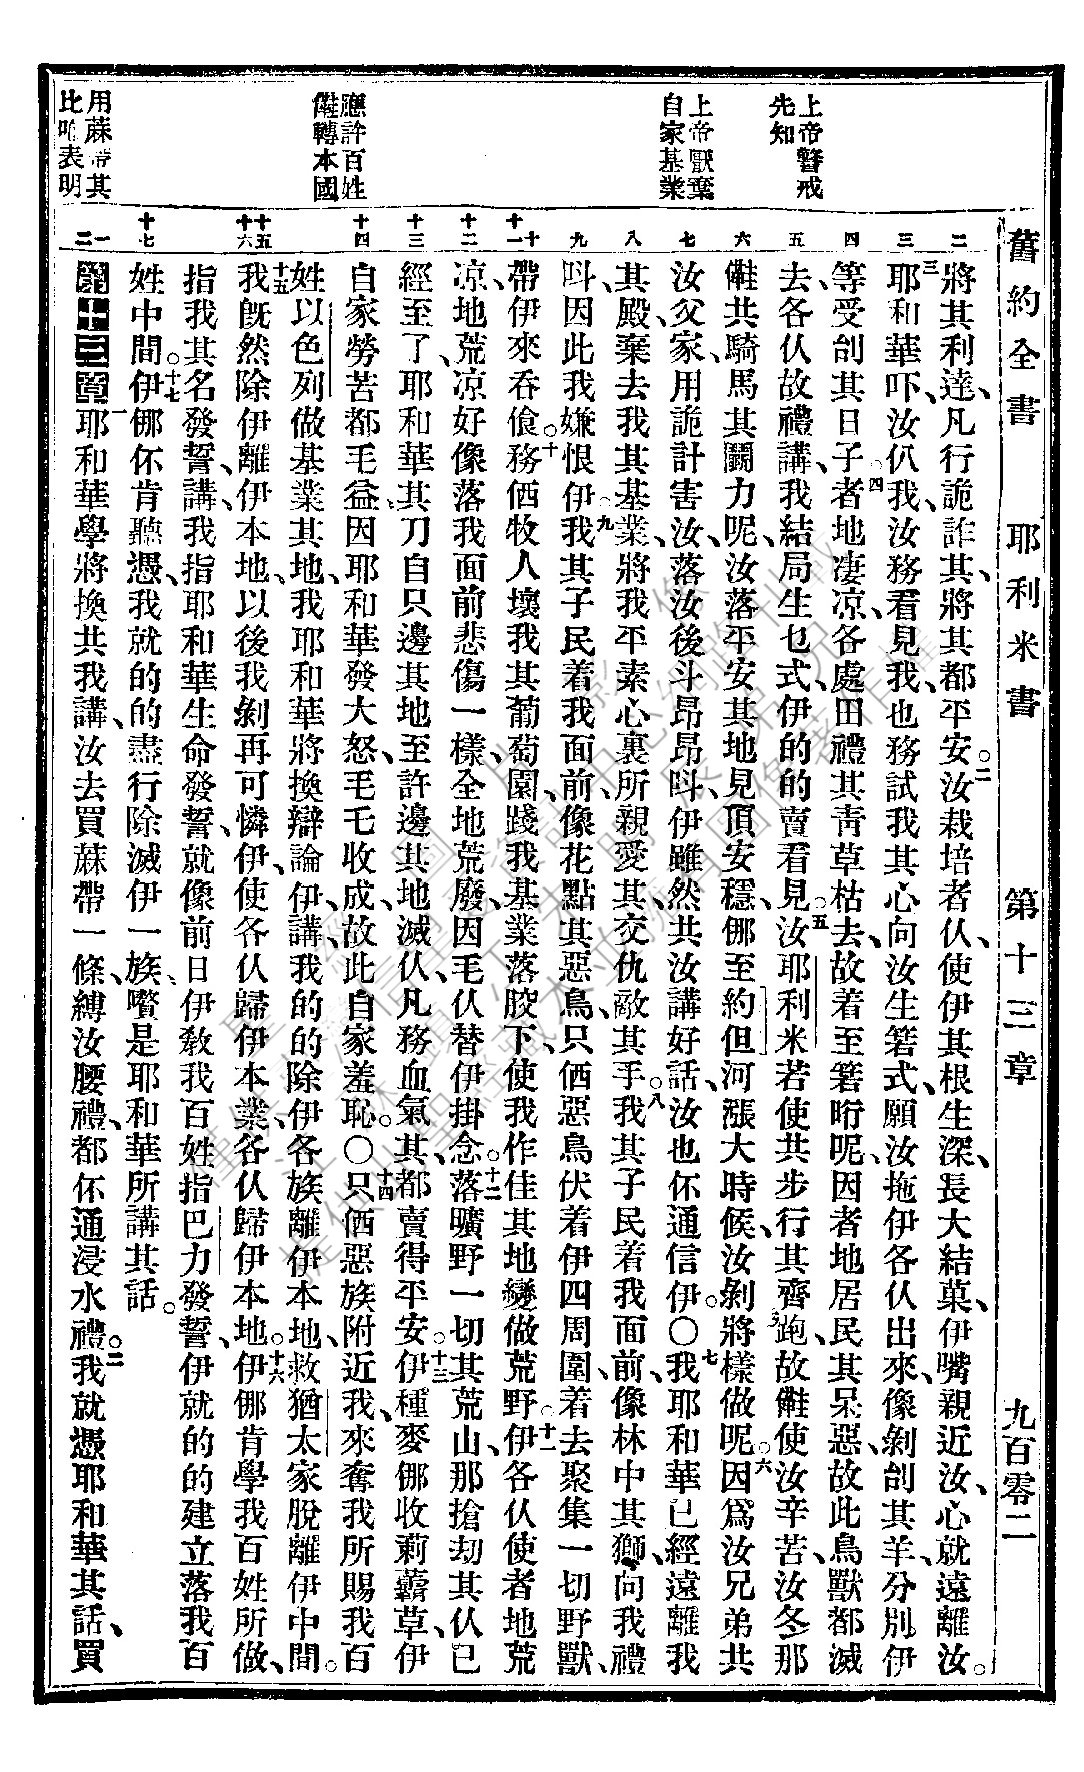 舊約全書 耶利米書 第十三章 九百零二
上帝警戒
先知
上帝厭棄
自家基業
應許百姓
僆轉本國
用蔴帶其
比喻表明
二
三
四
五
六
七
八
九
十
十一
十二
十三
十四
十五
十六
十七
一
二
將其利達、凡行詭詐其、將其都平安。二汝栽培者仈、使伊其根生深、長大結菓、伊嘴親近汝、心就遠離汝。
三耶和華吓、汝仈我、汝務看見我、也務試我其心向汝生箬式、願汝拖伊各仈出來、像剝刣其羊、分別伊
等受刣其日子。四者地凄凉、各處田禮其靑草枯去、故着至箬昕呢、因者地居民其呆惡、故此鳥獸都滅
去、各仈故禮講、我結局生乜式、伊的的賣看見。五汝耶利米若使共步行其齊跑、故僆使汝辛苦、汝冬那
僆共騎馬其鬭力呢、汝落平安其地見頂安穩、那至約但河漲大時候、汝剝將樣做呢。六因爲汝兄弟共
汝父家、用詭計害汝、落汝後斗昂昂呌、伊雖然共汝講好話、汝也伓通信伊。〇七我耶和華已經遠離我
其殿、棄去我其基業、將我平素心裏所親愛其、交仇敵其手。八我其子民着我面前、像林中其獅、向我禮
呌、因此我嫌恨伊。九我其子民着我面前、像花點其惡鳥、只価惡鳥伏着伊四周圍、着去聚集一切野獸、
帶伊來吞食。十務価牧人壞我其葡萄園、踐我基業落脧下、使我作佳其地變做荒野。十一伊各仈使者地荒
凉、地荒凉好像落我面前悲傷一樣、全地荒廢、因毛仈替伊掛念。十二落曠野一切其荒山、那搶刼其仈已
經至了、耶和華其刀自只邊其地、至許邊其地滅仈、凡務血氣其、都賣得平安。十三伊種麥那收莿藭草、伊
自家勞苦都毛益、因耶和華發大怒、毛乇收成、故此自家羞恥。〇十四只価惡族附近我、來奪我所賜我百
姓以色列做基業其地、我耶和華將換辯論伊講、我的的除伊各族離伊本地、救猶太家脫離伊中間。
十五我旣然除伊離伊本地、以後我剝再可憐伊、使各仈歸伊本業、各仈歸伊本地。十六伊那肯學我百姓所做、
指我其名發誓講、我指耶和華生命發誓、就像前日伊敎我百姓指巴力發誓、伊就的的建立落我百
姓中間。十七伊那伓肯聽憑、我就的的盡行除滅伊一族、嚽是耶和華所講其話。
第十三章 一耶和華學將換共我講、汝去買蔴帶一條、縛汝腰禮、都伓通浸水禮。二我就憑耶和華其話、買